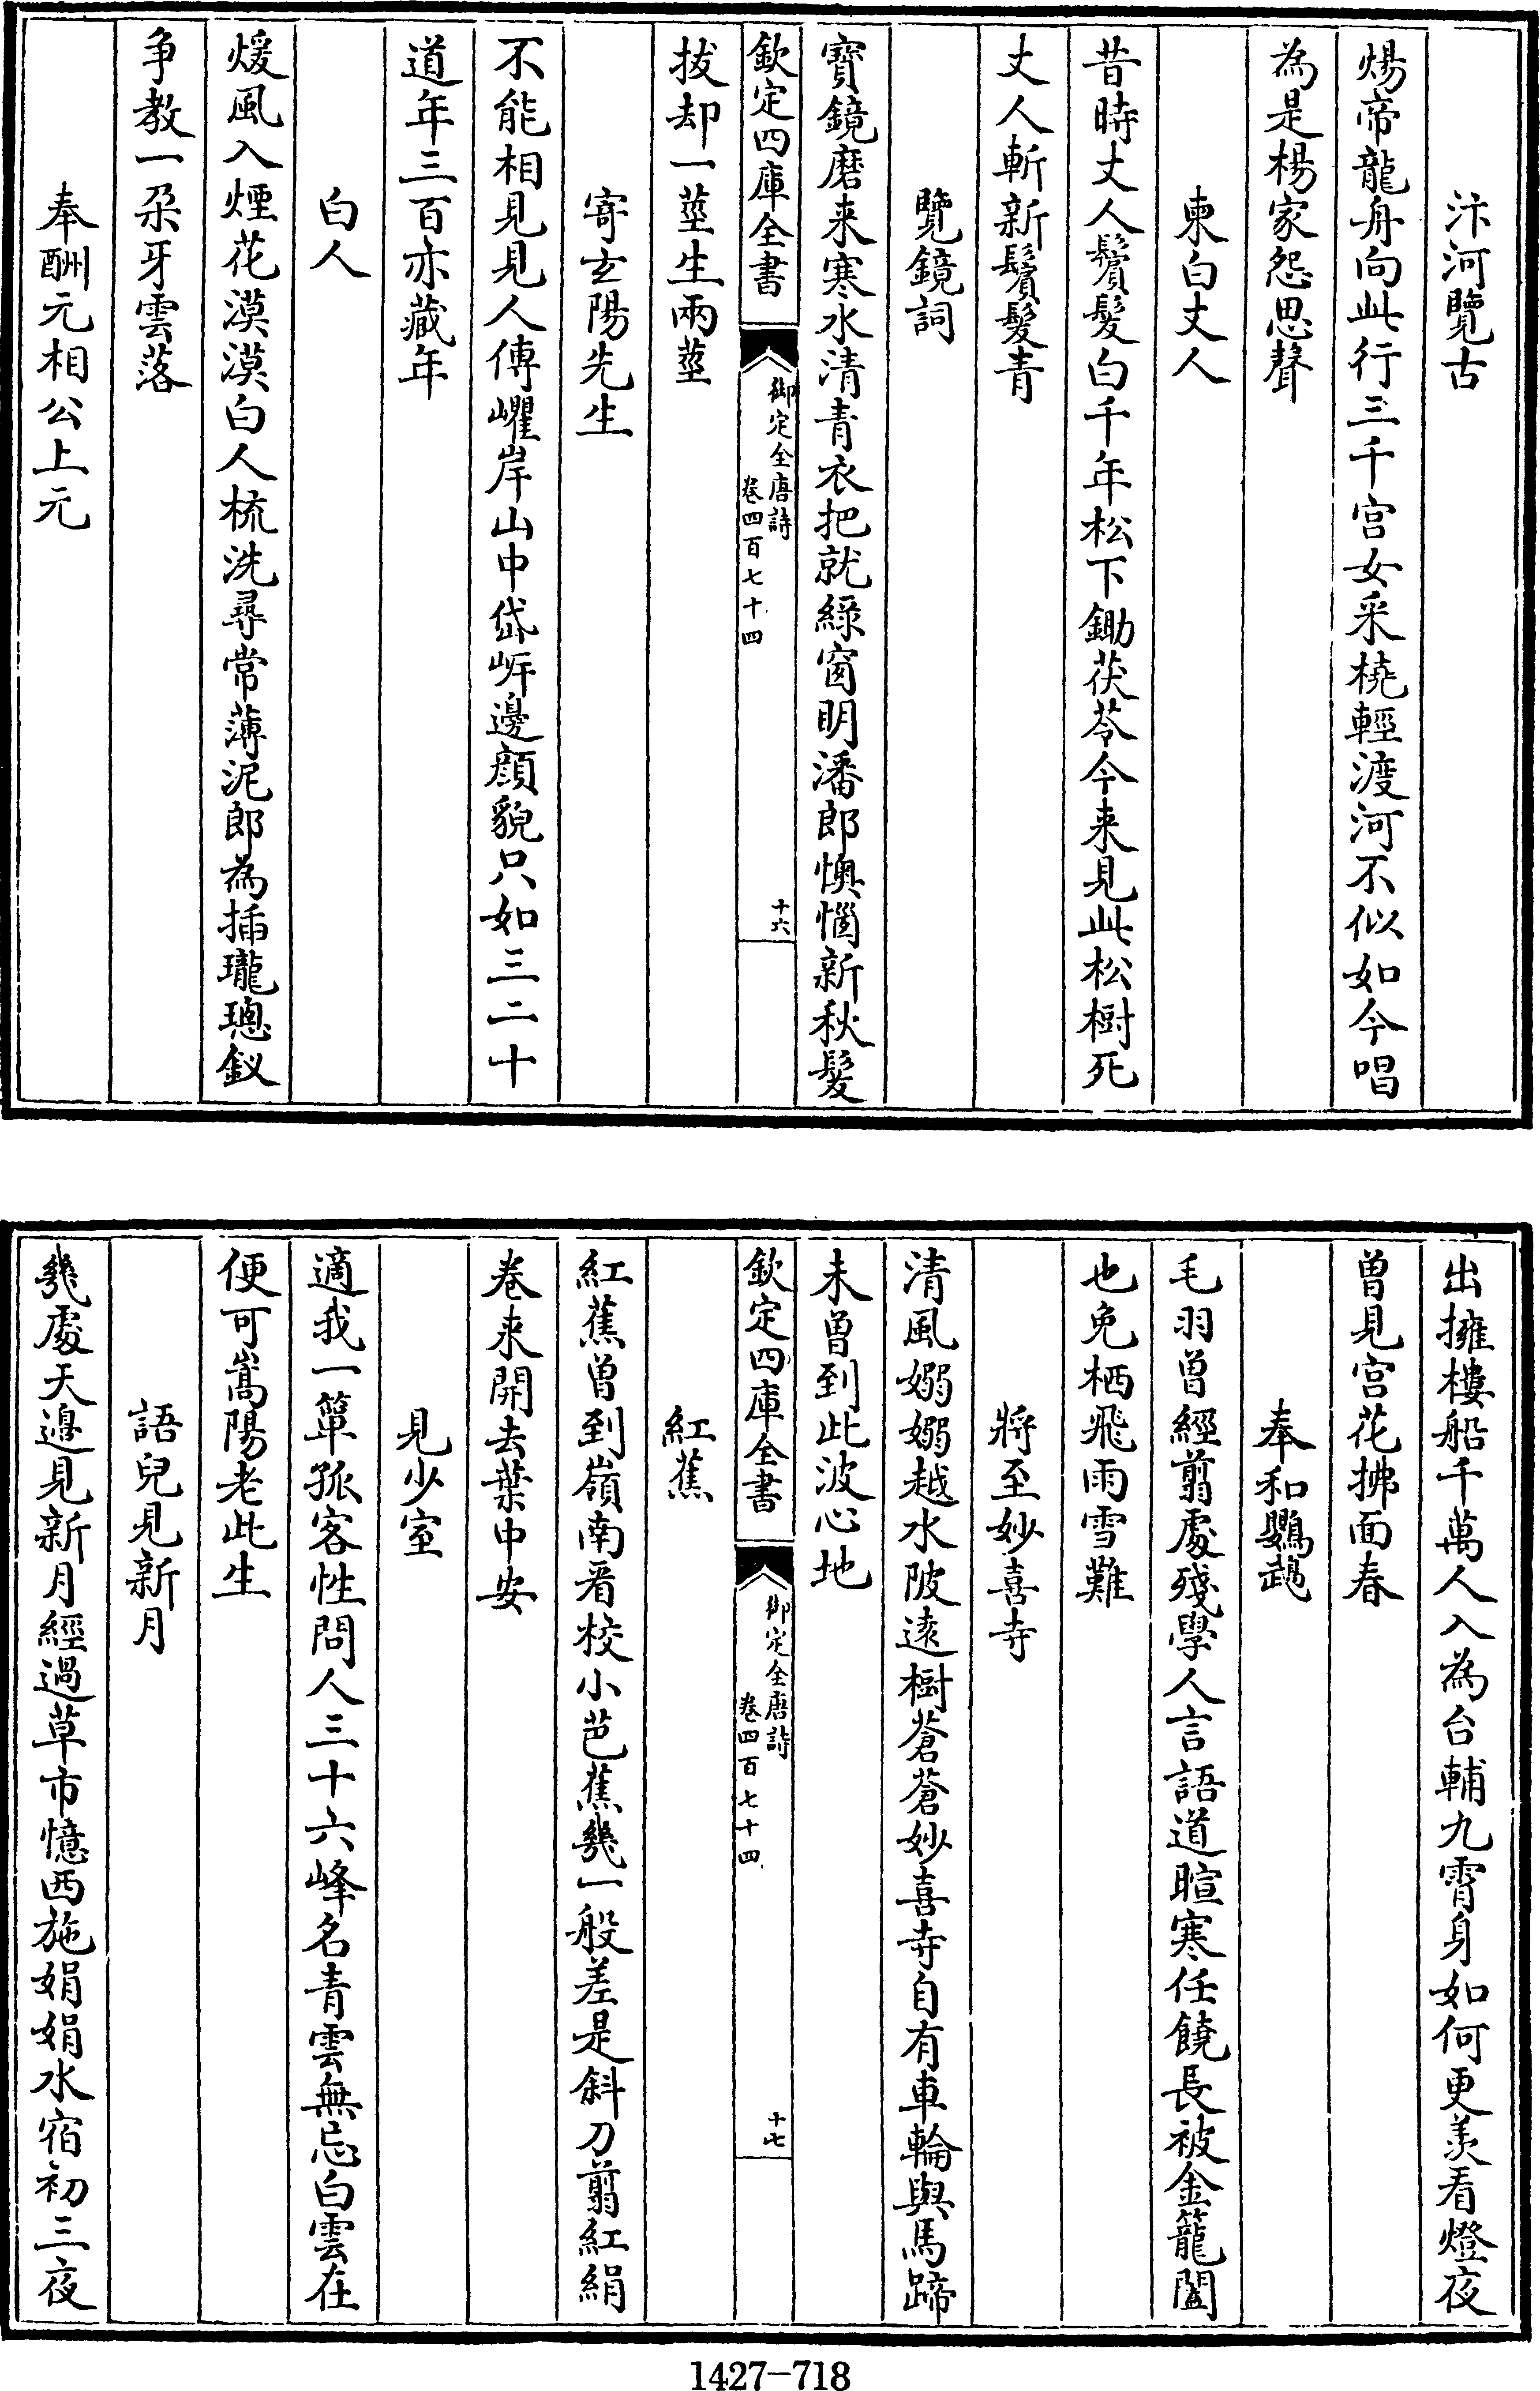 汴河覽古
煬帝龍舟向此行三千宮女采橈輕渡河不似如今唱
為是楊家怨思聲
柬白丈人
昔時丈人鬢髮白千年松下鋤茯苓今来見此松樹死
丈人斬新鬢髮青
覽鏡詞
寶鏡磨来寒水清青衣把就綠窗明潘郎懊惱新秋髮
欽定四庫全書
御定全唐詩
卷四百七十四
十六
拔却一莖生兩莖
寄玄陽先生
不能相見見人傳嶇岸山中岱岍邊顔貌只如三二十
道年三百亦藏年
白人
煖風入煙花漠漠白人梳洗尋常薄泥郎為插瓏璁釵
争教一朶牙雲落
奉酬元相公上元
出擁樓船千萬人入為台輔九霄身如何更羨看燈夜
曾見宮花拂面春
奉和鸚鵡
毛羽曾經剪處殘學人言語道暄寒任饒長被金籠闔
也免栖飛雨雪難
將至妙喜寺
清風嫋嫋越水陂遠樹蒼蒼妙喜寺自有車輪與馬蹄
未曾到此波心地
欽定四庫全書
御定全唐詩
卷四百七十四
十七
紅蕉
紅蕉曾到嶺南看校小芭蕉幾一般差是斜刀剪紅絹
卷来開去葉中安
見少室
適我一簞孤客性問人三十六峰名青雲無忘白雲在
便可嵩陽老此生
語兒見新月
幾處天邊見新月經過草市憶西施娟娟水宿初三夜
1427-718